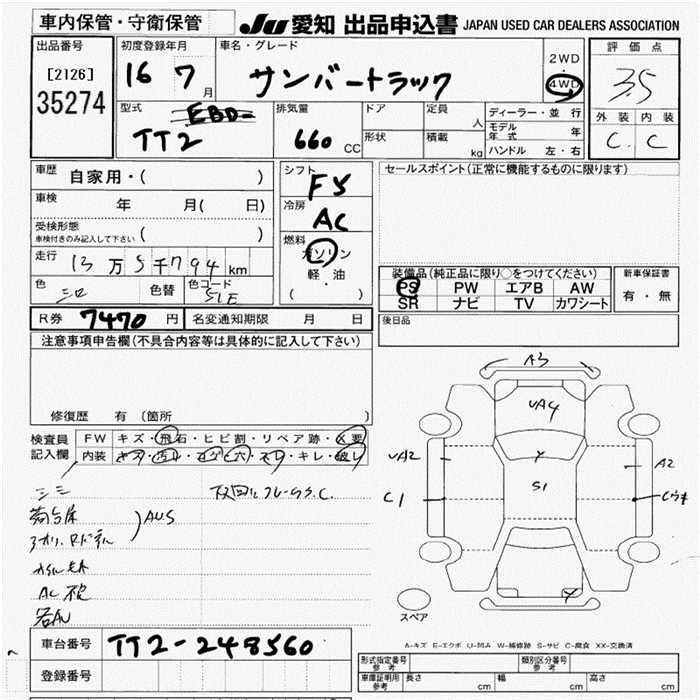 車内保管・守衛保管
JU 愛知 出品申込書 JAPAN USED CAR DEALERS ASSOCIATION
出品番号
[2126]
35274
初度登録年月
16 7 月
車名・グレード
サンバートラック
2WD
4WD
評価点
3.5
外装 内装
C. C
型式
EBD-
TT2
排気量
660 CC
ドア
定員
人
形状
積載
kg
ディーラー・並行
モデル年式
年
ハンドル 左・右
車歴
自家用・( )
車検
年 月( 日)
受検形態
車検付きのみ記入して下さい
( )
走行
13万5千794km
色
シロ
色替
色コード
51E
シフト
F5
冷房
AC
燃料
ガソリン
軽・油
( ・ )
セールスポイント(正常に機能するものに限ります)
装備品(純正品に限り○をつけてください)
PS PW エアB AW
SR ナビ TV カワシート
新車保証書
有・無
R券 7470 円
名変通知期限 月 日
後日品
注意事項申告欄(不具合内容等は具体的に記入して下さい)
修復歴 有(箇所 )
検査員記入欄
FW キズ・飛石・ヒビ割・リペア跡・X要
内装 キズ・汚れ・コゲ・穴・スレ・キレ・破レ
シミ
荷台床
AUS
AC不良
各AU
A3
UA4
UA2
Y
A2
S1
C1
Y
スペア
A-キズ E-エクボ U-凹み W-補修跡 S-サビ C-腐食 XX-交換済
車台番号
TT2-248560
登録番号
形式指定番号
参考
類別区分番号
参考
車庫証明用
参考
長さ cm
幅 cm
高さ cm